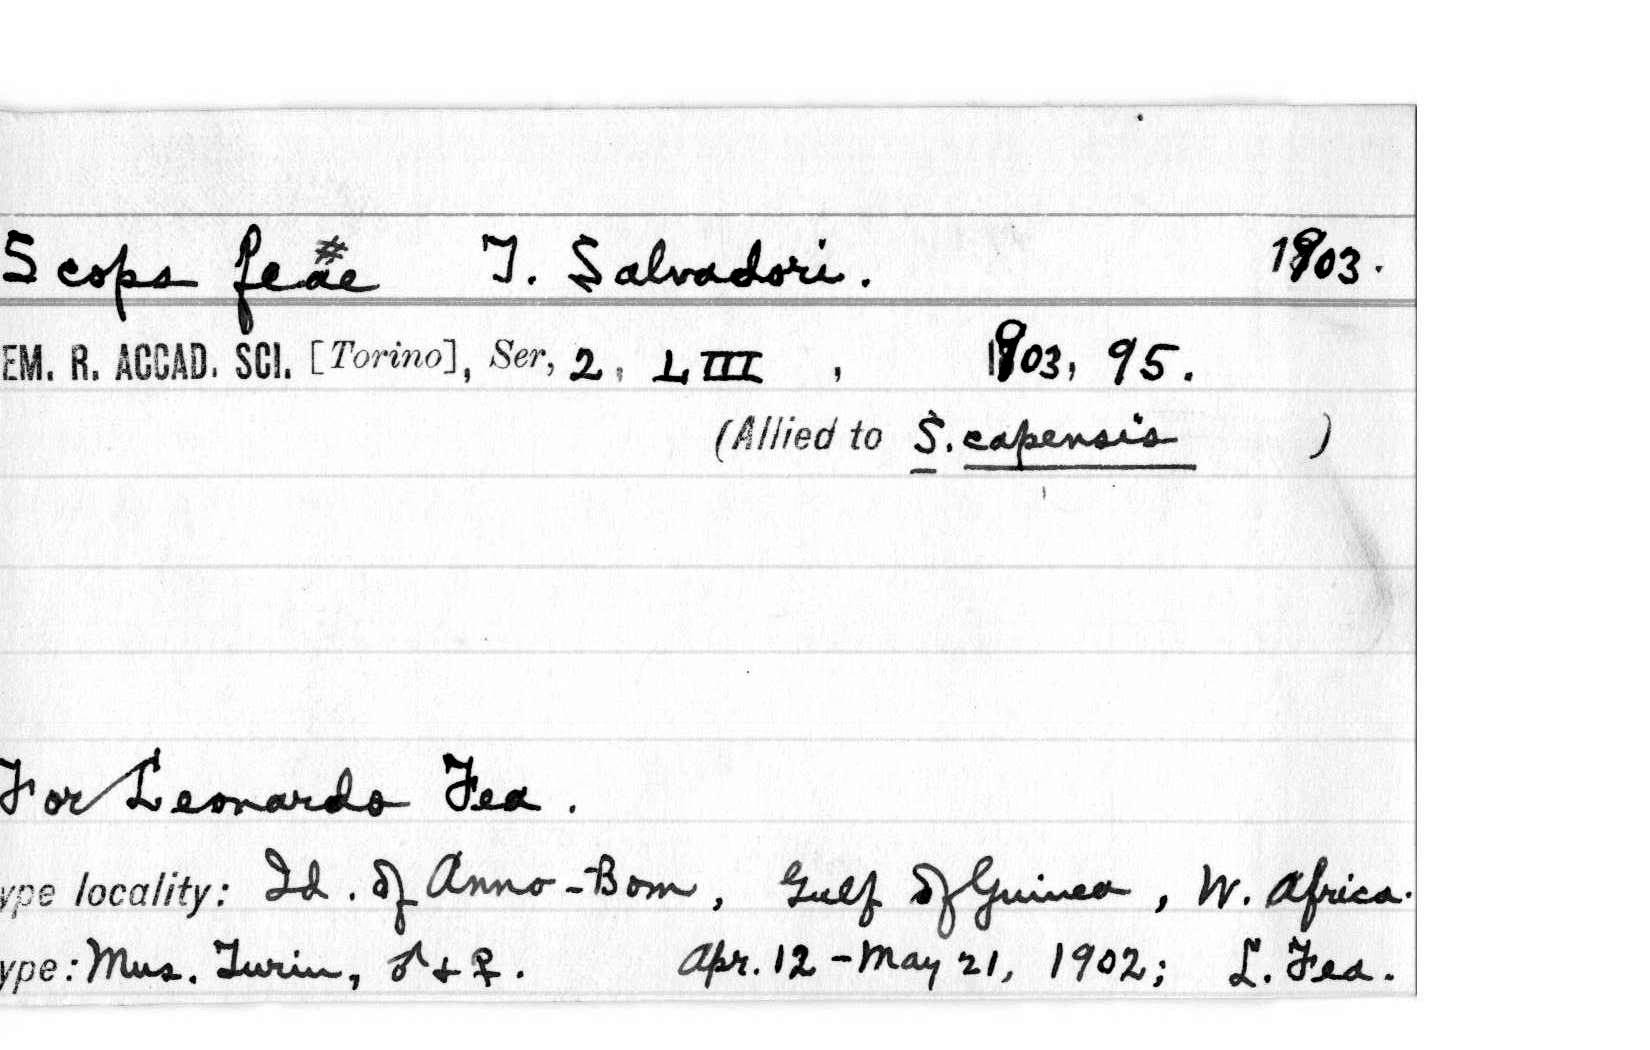 Scops feae # T. Salvadori. 1903.
EM. R. ACCAD. SCI. [Torino], Ser, 2, LIII, 1903, 95.
(Allied to S. capensis )
For Leonardo Fea.
ype locality: Id. of Anno-Bom, Gulf of Guinea, W. Africa.
ype: Mus. Turin, ♂ + ♀. Apr. 12 - May 21, 1902; L. Fea.